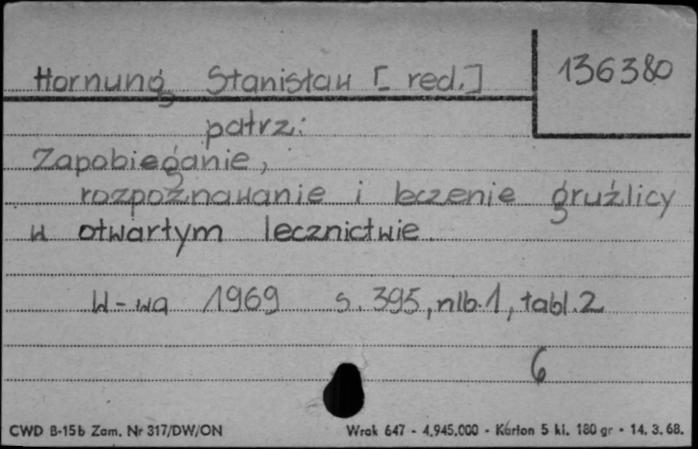 Hornung Stanisław [red.] 136380
patrz:
Zapobieganie,
rozpoznawanie i leczenie gruźlicy
w otwartym lecznictwie.
W-wa 1969 s. 395, nlb. 1, tabl. 2
6
CWD B-15b Zam. Nr 317/DW/ON Wrak 647 - 4.945.000 - Karton 5 kl. 180 gr - 14. 3. 68.